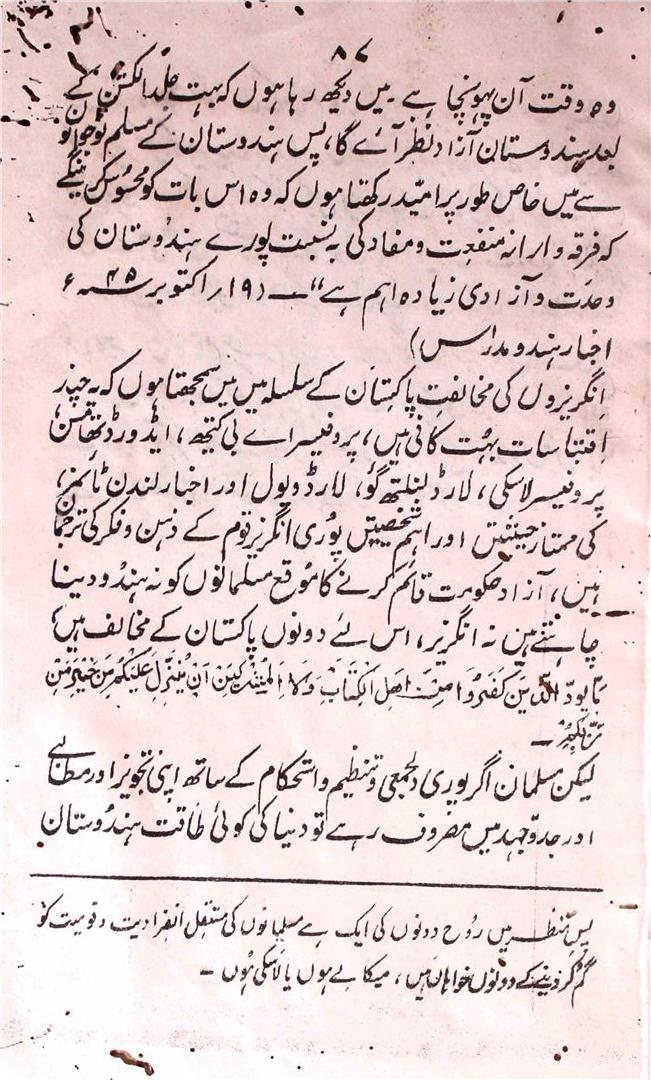 ۸۷
وہ وقت آن پہونچا ہے۔ میں دیکھ رہا ہوں کہ بہت جلد الکشن کے
بعد ہندوستان آزاد نظر آئے گا، پس ہندوستان کے مسلم نوجوانوں
سے میں خاص طور پر امید رکھتا ہوں کہ وہ اس بات کو محسوس کرینگے
کہ فرقہ وارانہ منفعت و مفاد کی بہ نسبت پورے ہندوستان کی
وحدت و آزادی زیادہ اہم ہے“۔ (۱۹؍ اکتوبر ۴۵ء
اخبار ہندو مدراس)
انگریزوں کی مخالفتِ پاکستان کے سلسلہ میں میں سمجھتا ہوں کہ یہ چند
اقتباسات بہت کافی ہیں، پروفیسر اے بی کیتھ، ایڈورڈ تھامسن
پروفیسر لاسکی، لارڈ لنلتھ گؤ، لارڈ ویول اور اخبار لندن ٹائمز،
کی ممتاز حیثیتیں اور اہم شخصیتیں پوری انگریز قوم کے ذہن و فکر کی ترجمان
ہیں، آزاد حکومت قائم کرنے کا موقع مسلمانوں کو نہ ہندو دینا
چاہتے ہیں نہ انگریز، اس لئے دونوں پاکستان کے مخالف ہیں،
مَا یَوَدُّ الَّذِیْنَ کَفَرُوْا مِنْ اَھْلِ الْکِتَابِ وَلَا الْمُشْرِکِیْنَ اَنْ یُّنَزَّلَ عَلَیْکُمْ مِنْ خَیْرٍ مِّنْ
رَّبِّکُمْ۔
لیکن مسلمان اگر پوری دلجمعی و تنظیم و استحکام کے ساتھ اپنی تجویز اور مطالبے
اور جدوجہد میں مصروف رہے تو دنیا کی کوئی طاقت ہندوستان
پس منظر میں روح دونوں کی ایک ہے مسلمانوں کی مستقل انفرادیت و قومیت کو
گم کر دینے کے دونوں خواہاں ہیں، میکالے ہوں یا لاسکی ہوں۔